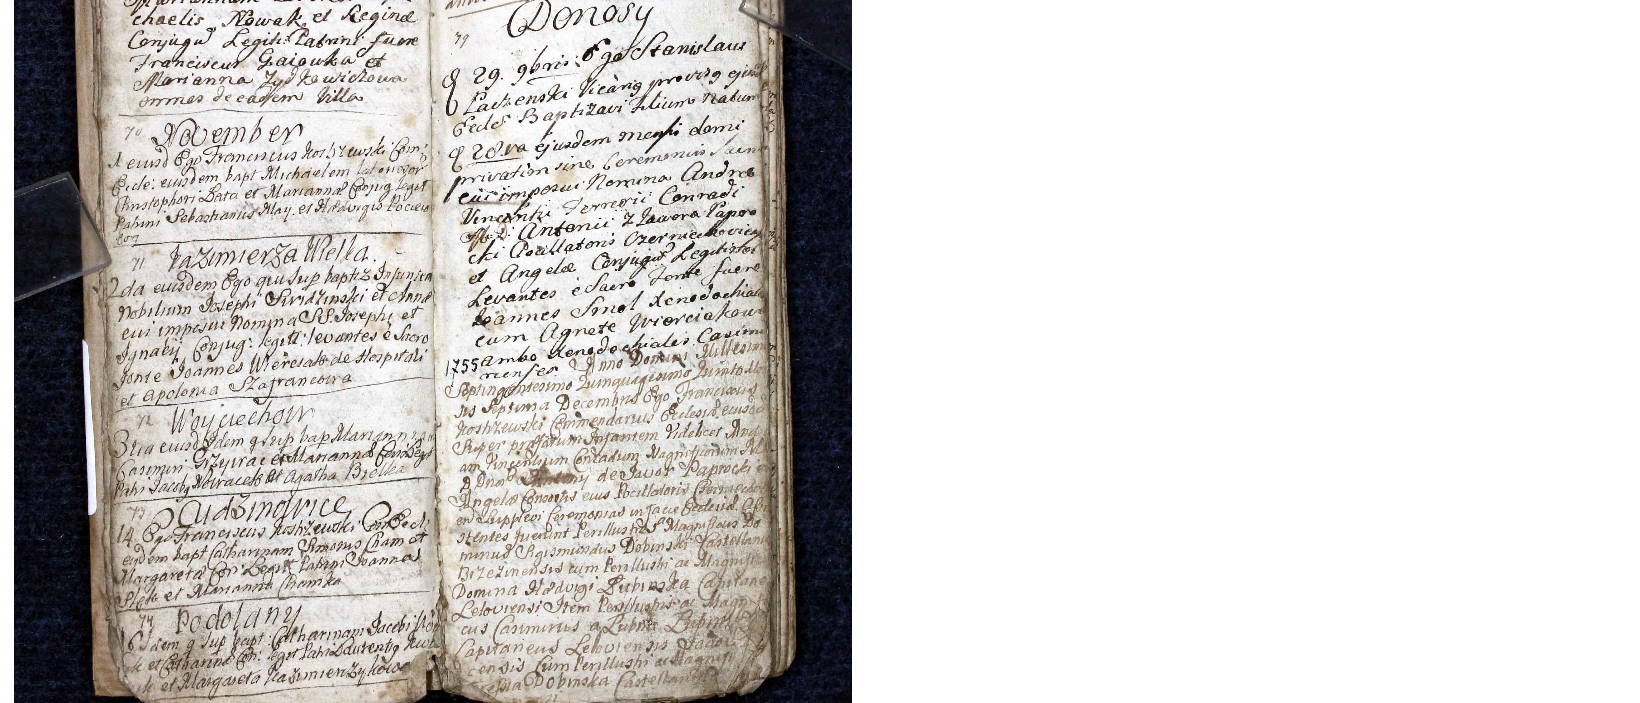 chaelis Nowak et Reginæ
Conjugū Legit: Patrini fuere
Franciscus Gaiowka et
Marianna Zydkowiczowa
omnes de eadem Villa
70
November
1 eiusd Ego Franciscus Koshzewski Com:
Eccle: eiusdem bapt Michaelem
Christophori Bata et Marianna Conjug legit
Patrini Sebastianus May et Hedvigis
71
Kazimierza Wielka.
2da eiusdem Ego qui sup baptiz Infantem
Nobilium Josephi et Annæ
cui imposui Nomina SS. Josephi et
Ignatij Conjug: legitt: levantes è Sacro
fonte Joannes Wieresak de Hospitali
et Apolonia Szafrancowa
72
Woyciechow
3tia eiusd Idem q sup bap Mariannam
Casimiri Grzywac et Marianna Con Legit
Patri Jacob Nowacek et Agatha Bielka
73
Cudzinovice
14. Ego Franciscus Koshzewski Com Eccl:
eiusdem bapt Catharinam Simonis Cham et
Margareta Con Legit Patrini Joannes
et Marianna Chamka
74
Podolany
16 Idem q sup bapt: Catharinam Jacobi
et Catharina Con: legit Patri Laurentius
et Margareta Kazimierzykowa
79
Donosy
29. 9bris: Ego Stanislaus
Laczenski Vicārig provisg ejusd
Eccles Baptizavi Filium Natum
28va ejusdem mensis domi
privatim sine Ceremoniis Sacris
cui imposui Nomina Andreæ
Vincentii Ferrerii Conradi
M: D: Antonii Z Jawora Papro
cki Pocillatoris Czerniechovien
et Angelæ Conjugū Legitimor
Levantes è Sacro Fonte fuere
Joannes Smol Xenodochialis
cum Agnete Wiorciakowa
ambo Xenodochiales Casimi
rienses.
1755 Anno Domini Millesimo
Septingentesimo Quinquagesimo Quinto
Septima Decembris Ego Franciscus
Koshzewski Commendarius Ecclesiæ eiusdem
Super præfatum Infantem Videlicet And
am Vincentium Conradum Magnificorum
D Dnor Antony de Jawor Paprocki
Angelæ Consortis eius Pocillatoris Czerniecho
en Supplevi Ceremonias in facie Ecclesiæ
stentes fuerunt Perillustris et Magnificus Do
minus Sigismundus Dobinski Castellanus
Brzezinensis cum Perillustri ac Magnifica
Domina Hedvigi Lubinska Capitanea
Leloviensi Item Perillustris ac Magnifi
cus Casimirus a Lubna Lubinski
Capitaneus Leloviensis
ensis Cum Perillustri ac Magnif
Dobinska Castellanka